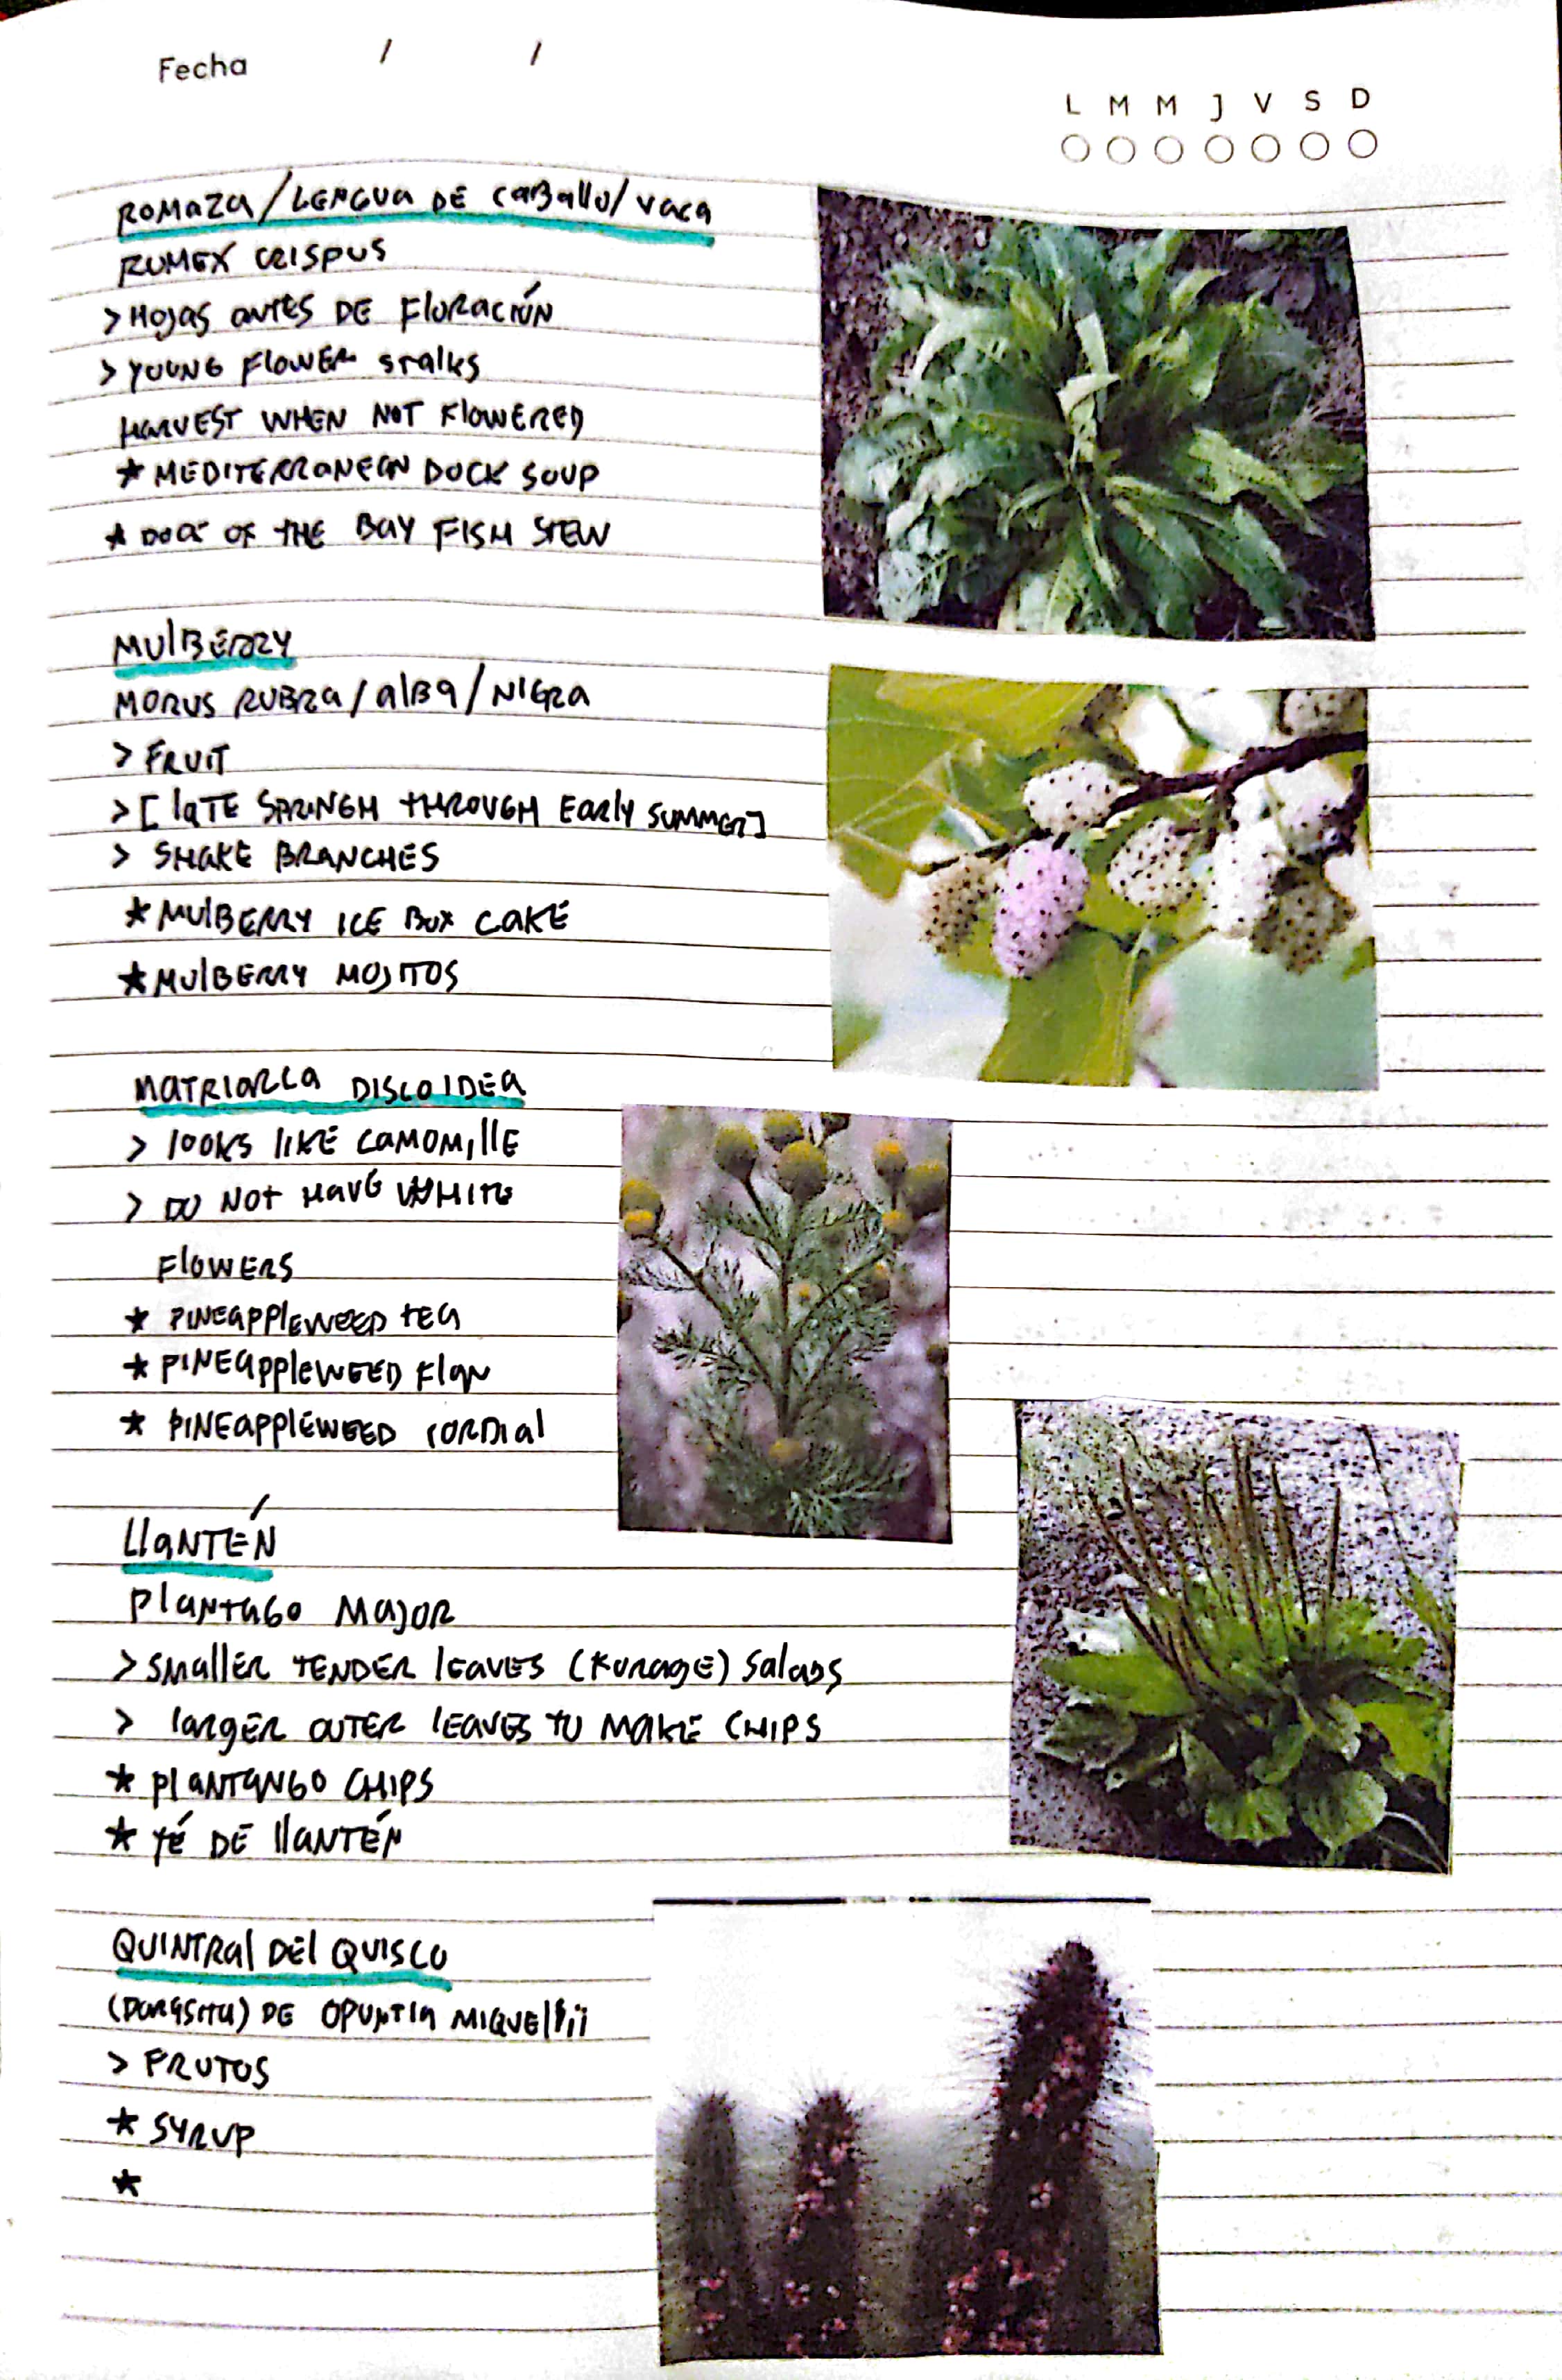 Fecha / /
L M M J V S D
ROMAZA/LENGUA DE CABALLO/VACA
RUMEX CRISPUS
> HOJAS ANTES DE FLORACIÓN
> YOUNG FLOWER STALKS
HARVEST WHEN NOT FLOWERED
★ MEDITERRANEAN DOCK SOUP
★ DOCK OF THE BAY FISH STEW
MULBERRY
MORUS RUBRA/ALBA/NIGRA
> FRUIT
> [LATE SPRINGH THROUGH EARLY SUMMER]
> SHAKE BRANCHES
★ MULBERRY ICE BOX CAKE
★ MULBERRY MOJITOS
MATRIARCA DISCOIDEA
> LOOKS LIKE CAMOMILLE
> DO NOT HAVE WHITE
FLOWERS
★ PINEAPPLEWEED TEA
★ PINEAPPLEWEED FLAN
★ PINEAPPLEWEED CORDIAL
LLANTÉN
PLANTAGO MAJOR
> SMALLER TENDER LEAVES (FORAGE) SALADS
> LARGER OUTER LEAVES TO MAKE CHIPS
★ PLANTANGO CHIPS
★ TÉ DE LLANTÉN
QUINTRAL DEL QUISCO
(PARASITO) DE OPUNTIA MIQUELII
> FRUTOS
★ SYRUP
★